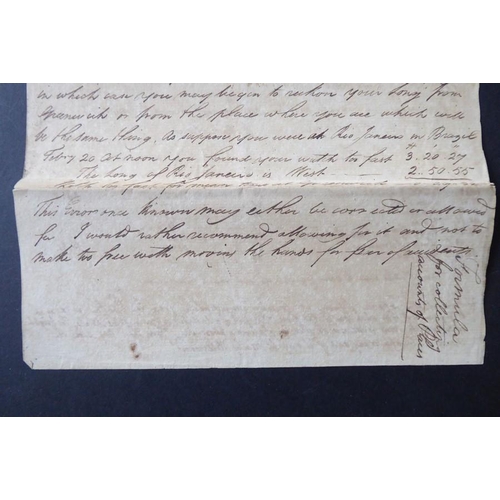 in which case you may began to reckon your Long from
Greenwich or from the place where you are which will
be the same thing, as suppose you were at Rio Janeiro in Brazil
Feby 20 at noon you found your watch too fast 3. 20. 27
The Long of Rio Janeiro is West — 2. 50. 55
This error once known may either be corrected or allowed
for I would rather recommend allowing for it and not to
make too free with moving the hands for fear of accidents
Formula
for collecting
accounts of